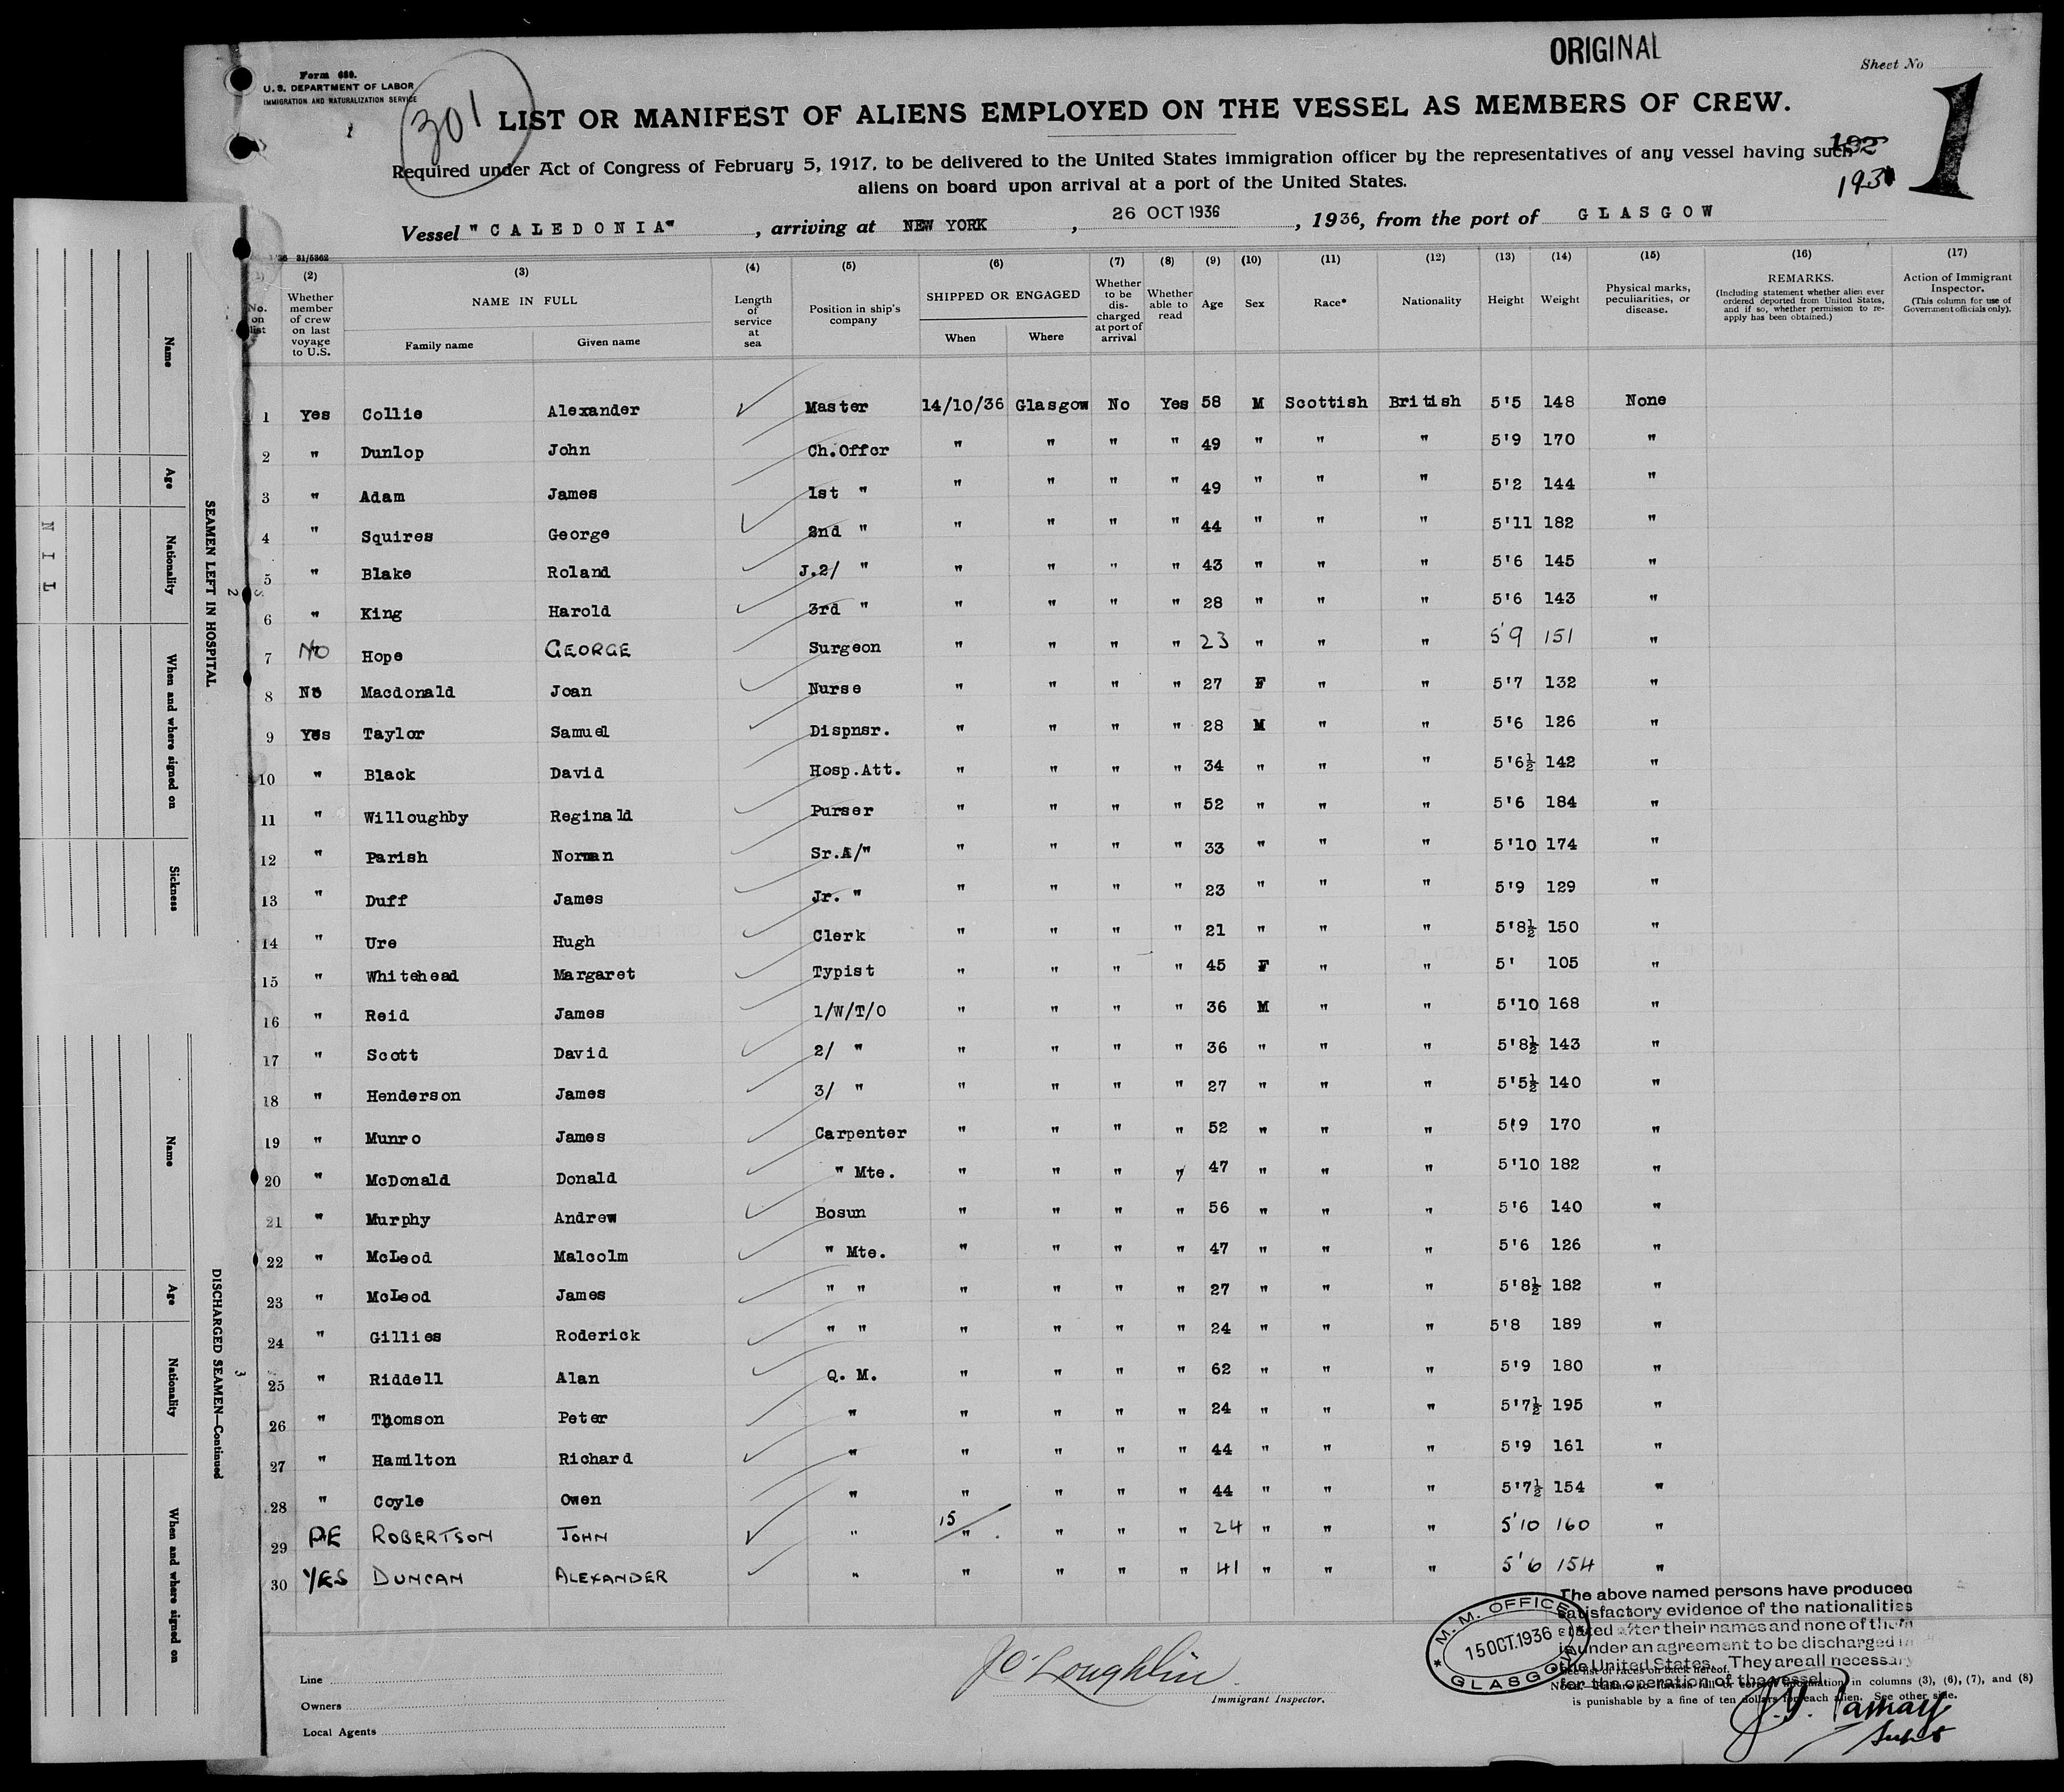 ORIGINAL
Form 689.
U. S. DEPARTMENT OF LABOR
IMMIGRATION AND NATURALIZATION SERVICE
Sheet No
1
301
LIST OR MANIFEST OF ALIENS EMPLOYED ON THE VESSEL AS MEMBERS OF CREW.
Required under Act of Congress of February 5, 1917, to be delivered to the United States immigration officer by the representatives of any vessel having such
aliens on board upon arrival at a port of the United States.
Vessel "CALEDONIA", arriving at NEW YORK, 26 OCT 1936, 1936, from the port of GLASGOW
(2) (3) (4) (5) (6) (7) (8) (9) (10) (11) (12) (13) (14) (15) (16) (17)
No. on list Whether member of crew on last voyage to U.S. NAME IN FULL Family name Given name Length of service at sea Position in ship's company SHIPPED OR ENGAGED When Where Whether to be discharged at port of arrival Whether able to read Age Sex Race* Nationality Height Weight Physical marks, peculiarities, or disease. REMARKS. (Including statement whether alien ever ordered deported from United States, and if so, whether permission to reapply has been obtained.) Action of Immigrant Inspector. (This column for use of Government officials only).
1 Yes Collie Alexander Master 14/10/36 Glasgow No Yes 58 M Scottish British 5'5 148 None
2 " Dunlop John Ch.Offcr " " " " 49 " " " 5'9 170 "
3 " Adam James 1st " " " " " 49 " " " 5'2 144 "
4 " Squires George 2nd " " " " " 44 " " " 5'11 182 "
5 " Blake Roland J.2/ " " " " " 43 " " " 5'6 145 "
6 " King Harold 3rd " " " " " 28 " " " 5'6 143 "
7 No Hope GEORGE Surgeon " " " " 23 " " " 5'9 151 "
8 No Macdonald Joan Nurse " " " " 27 F " " 5'7 132 "
9 Yes Taylor Samuel Dispnsr. " " " " 28 M " " 5'6 126 "
10 " Black David Hosp.Att. " " " " 34 " " " 5'6½ 142 "
11 " Willoughby Reginald Purser " " " " 52 " " " 5'6 184 "
12 " Parish Norman Sr.A/" " " " " 33 " " " 5'10 174 "
13 " Duff James Jr. " " " " " 23 " " " 5'9 129 "
14 " Ure Hugh Clerk " " " " 21 " " " 5'8½ 150 "
15 " Whitehead Margaret Typist " " " " 45 F " " 5' 105 "
16 " Reid James 1/W/T/O " " " " 36 M " " 5'10 168 "
17 " Scott David 2/ " " " " " 36 " " " 5'8½ 143 "
18 " Henderson James 3/ " " " " " 27 " " " 5'5½ 140 "
19 " Munro James Carpenter " " " " 52 " " " 5'9 170 "
20 " McDonald Donald " Mte. " " " " 47 " " " 5'10 182 "
21 " Murphy Andrew Bosun " " " " 56 " " " 5'6 140 "
22 " McLeod Malcolm " Mte. " " " " 47 " " " 5'6 126 "
23 " McLeod James " " " " " " 27 " " " 5'8½ 182 "
24 " Gillies Roderick " " " " " " 24 " " " 5'8 189 "
25 " Riddell Alan Q. M. " " " " 62 " " " 5'9 180 "
26 " Thomson Peter " " " " " 24 " " " 5'7½ 195 "
27 " Hamilton Richard " " " " " 44 " " " 5'9 161 "
28 " Coyle Owen " " " " " 44 " " " 5'7½ 154 "
29 ROBERTSON JOHN " 15/" " " " 24 " " " 5'10 160 "
30 YES DUNCAN ALEXANDER " " " " " 41 " " " 5'6 154 "
The above named persons have produced
satisfactory evidence of the nationalities
stated after their names and none of them
is under an agreement to be discharged in
the United States. They are all necessary
for the operation of the vessel.
M. M. OFFICE
15 OCT. 1936
GLASGOW
See list of races on back hereof.
information in columns (3), (6), (7), and (8)
is punishable by a fine of ten dollars for each alien. See other side.
Line
Owners
Local Agents
J O'Loughlin
Immigrant Inspector.
Supt
SEAMEN LEFT IN HOSPITAL
Name
Age
Nationality
When and where signed on
Sickness
NIL
2
DISCHARGED SEAMEN—Continued
Name
Age
Nationality
When and where signed on
3